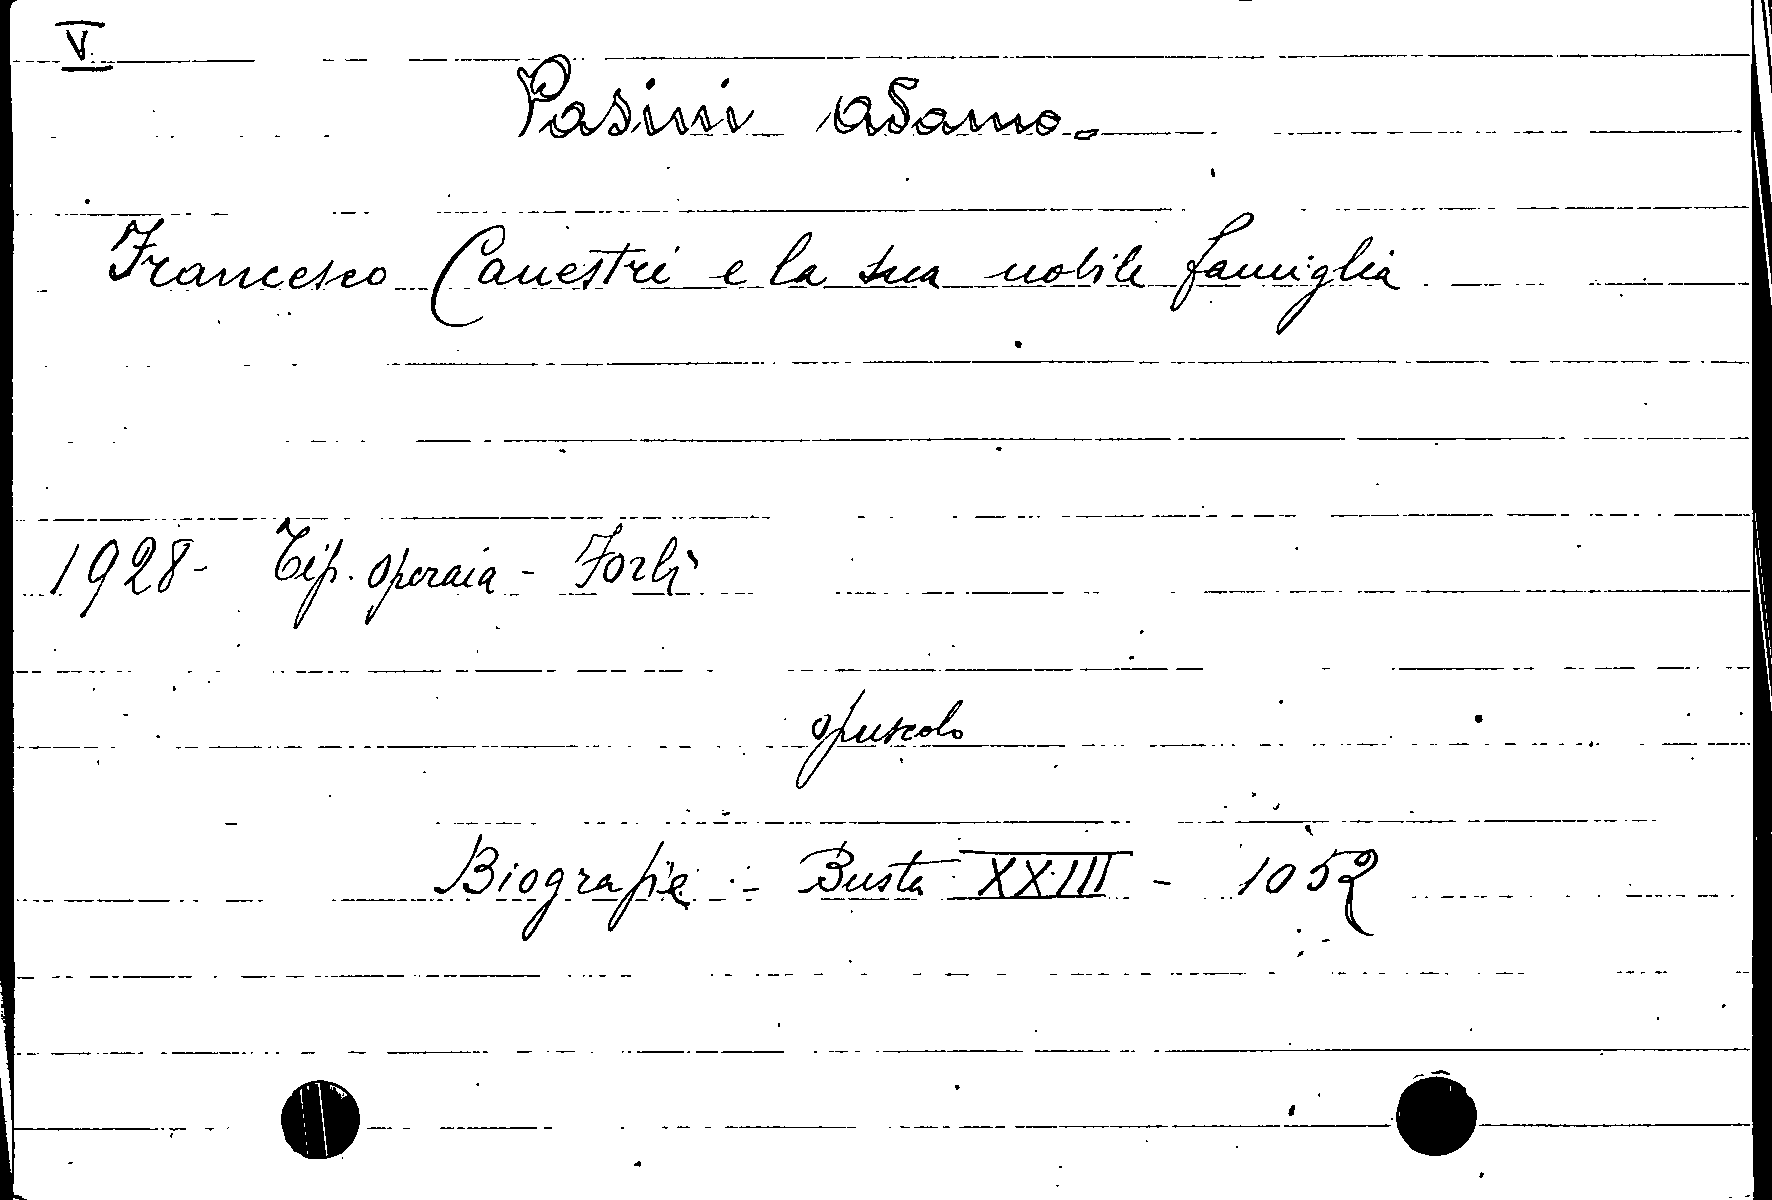 V
Pasini Adamo.
Francesco Canestri e la sua nobile famiglia
1928- Tip. Operaia - Forlì
opuscolo
Biografie - Busta XXIII - 1052